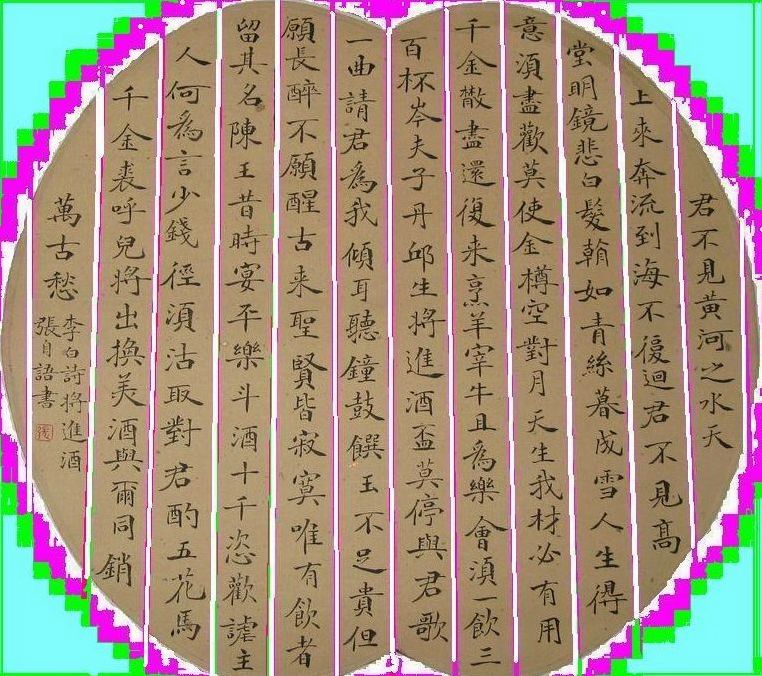 君不見黃河之水天
上來奔流到海不復迴君不見高
堂明鏡悲白髮朝如青絲暮成雪人生得
意須盡歡莫使金樽空對月天生我材必有用
千金散盡還復来烹羊宰牛且為樂會須一飲三
百杯岑夫子丹邱生將進酒盃莫停與君歌
一曲請君為我傾耳聽鐘鼓饌玉不足貴但
願長醉不願醒古来聖賢皆寂寞唯有飲者
留其名陳王昔時宴平樂斗酒十千恣歡謔主
人何為言少錢徑須沽取對君酌五花馬
千金裘呼兒將出換美酒與爾同銷
萬古愁
李白詩將進酒
張自語書